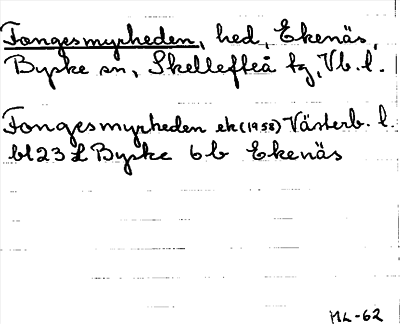 Fongesmyrheden, hed, Ekenäs,
Byske sn, Skellefteå tg, Vb. l.
Fongesmyrheden ek (1958) Västerb. l.
bl 23 L Byske 6b Ekenäs
ML-62